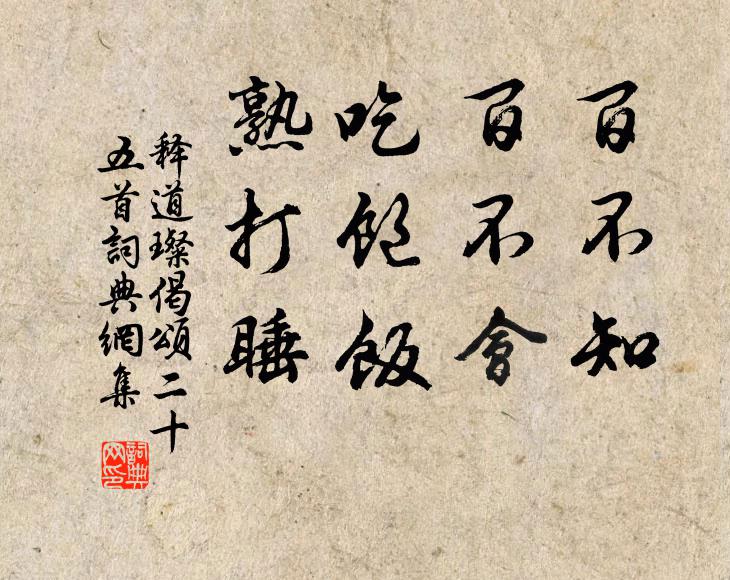 百不知
百不會
吃飽飯
熟打睡
释道璨偈頌二十
五首詞典網集
詞典
网印